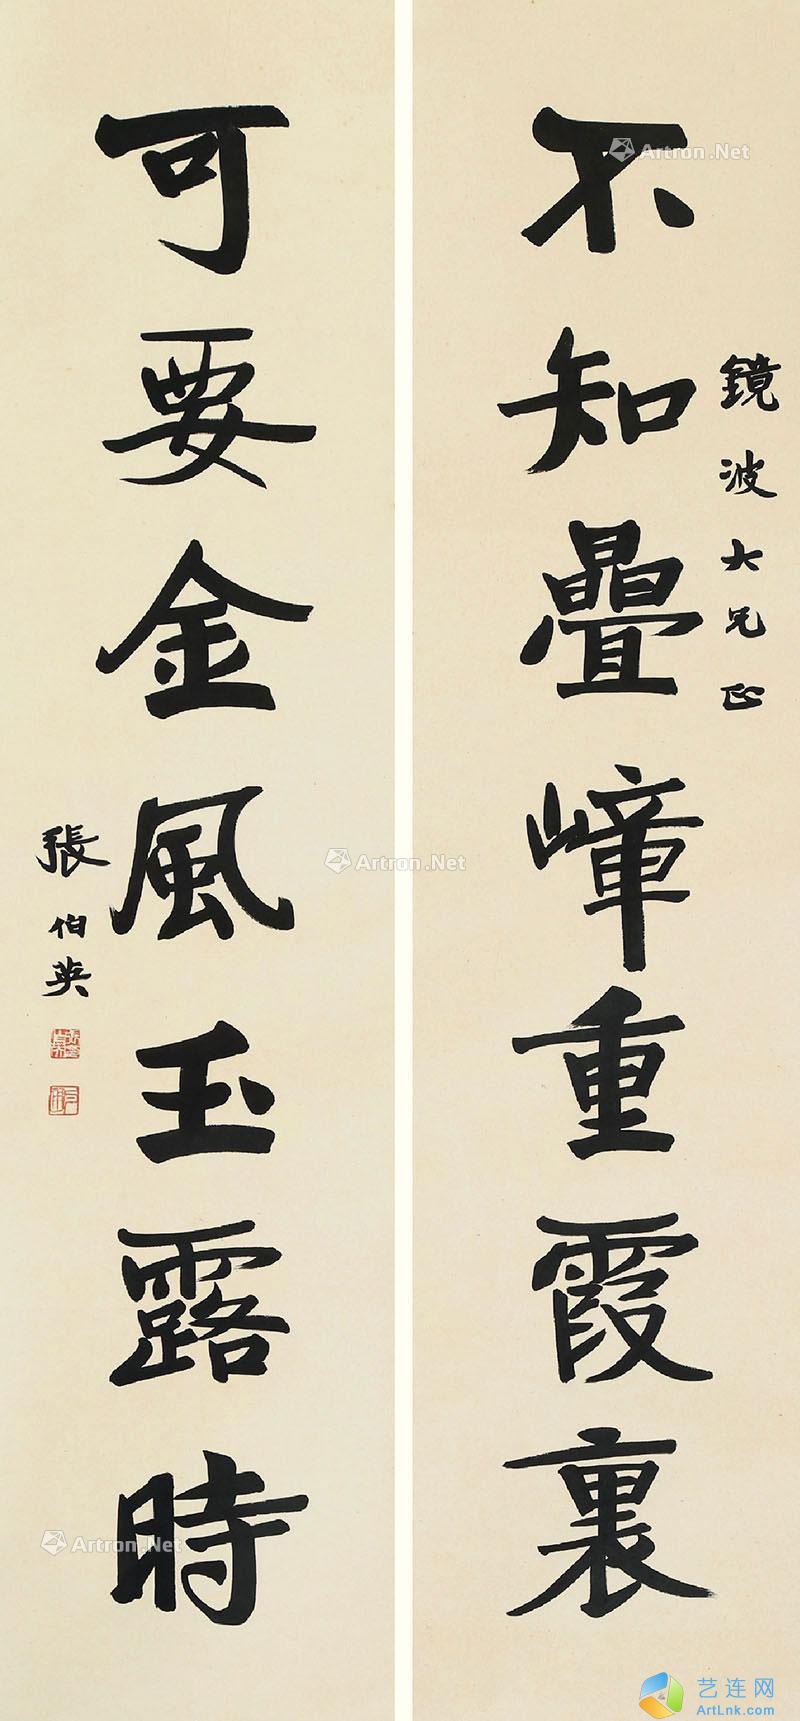 不知疊嶂重霞裏
鏡波大兄正
可要金風玉露時
張伯英
Artron.Net
Artron.Net
Artron.Net
艺连网
ArtLnk.com